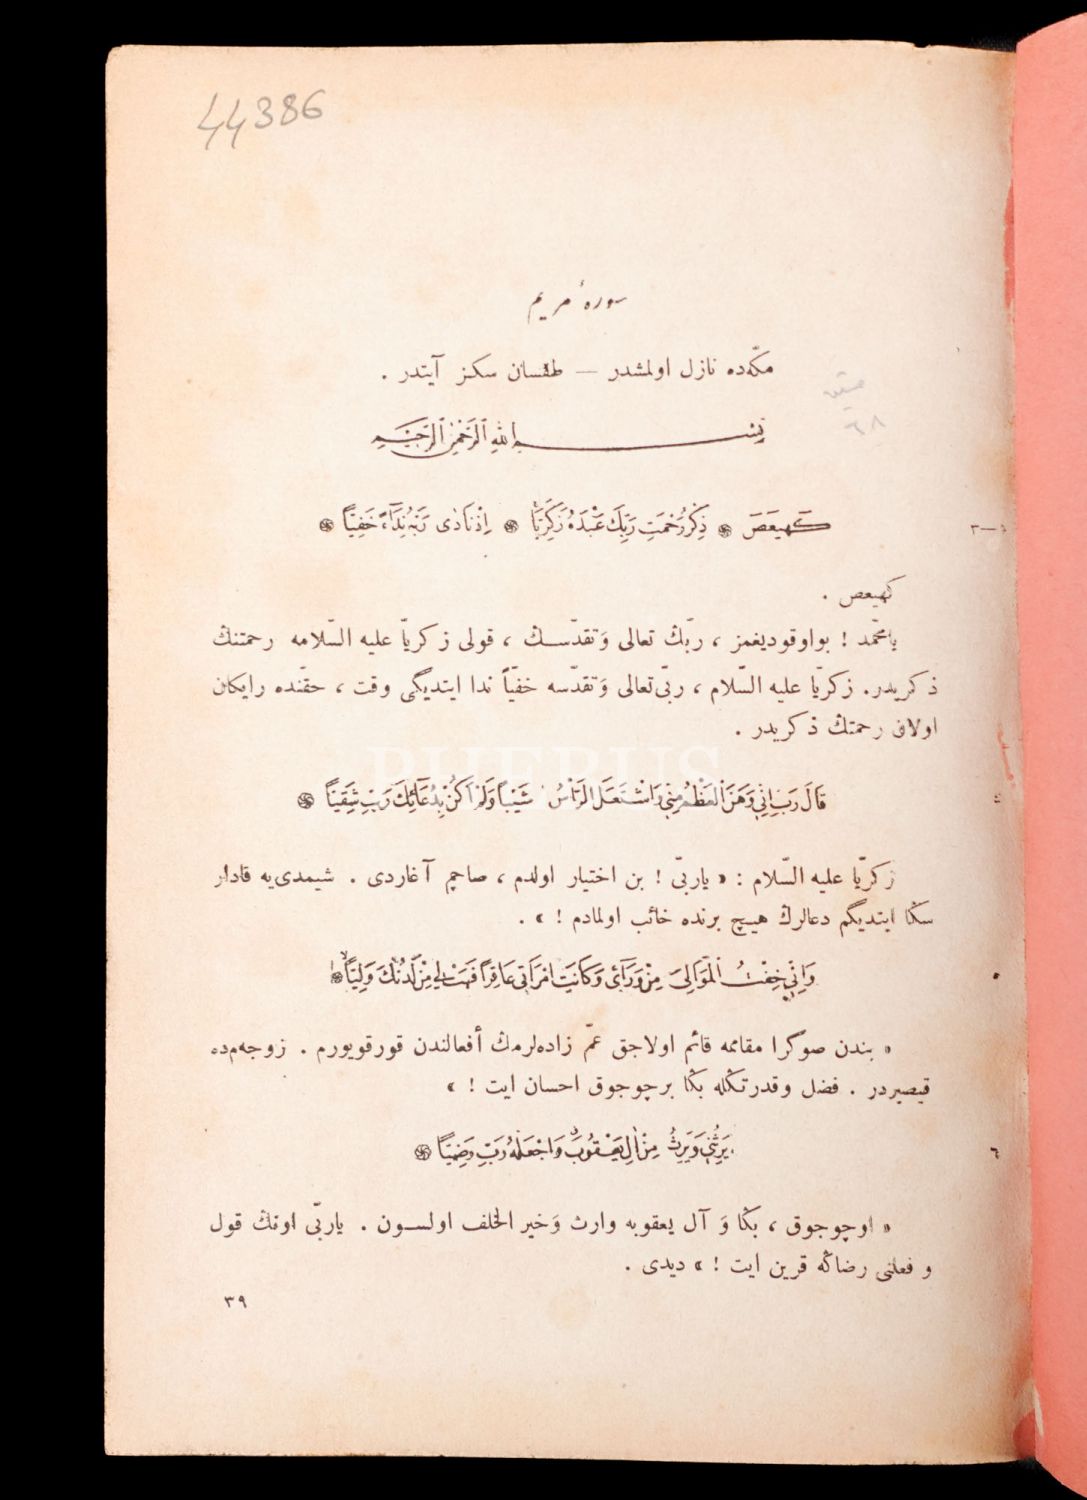 44386
سورهٔ مريم
مكّه‌ده نازل اولمشدر — طقسان سكز آيتدر .
بِسْمِ اللهِ الرَّحْمٰنِ الرَّحِيمِ
كٓهيعٓصٓ ۞ ذِكْرُ رَحْمَتِ رَبِّكَ عَبْدَهُ زَكَرِيَّا ۞ اِذْ نَادٰى رَبَّهُ نِدَآءً خَفِيًّا ۞
كهيعص .
يامحمّد ! بواوقوديغمز ، ربّڭ تعالى وَتقدّسڭ ، قولى زكريّا عليه السّلامه رحمتنڭ
ذكريدر. زكريّا عليه السّلام ، ربّى‌تعالى وَتقدّسه خفيّاً ندا ايتديگى وقت ، حقّنده رايكان
اولان رحمتڭ ذكريدر .
PHEBUS
قَالَ رَبِّ اِنِّي وَهَنَ الْعَظْمُ مِنِّي وَاشْتَعَلَ الرَّأْسُ شَيْبًا وَلَمْ اَكُنْ بِدُعَآئِكَ رَبِّ شَقِيًّا ۞
زكريّا عليه السّلام : « ياربّى ! بن اختيار اولدم ، صاچم آغاردى . شيمدى‌يه قادار
سڭا ايتديگم دعالرڭ هيچ برنده خائب اولمادم ! » .
وَاِنِّي خِفْتُ الْمَوَالِىَ مِنْ وَرَآئى وَكَانَتِ امْرَاَتى عَاقِرًا فَهَبْ لى مِنْ لَدُنْكَ وَلِيًّا ۞
« بندن صوڭرا مقاممه قائم اولاجق عمّ زاده‌لرمڭ أفعالندن قورقويورم . زوجه‌م‌ده
قيصيردر . فضل وقدرتڭله بڭا برچوجوق احسان ايت ! »
يَرِثُنى وَيَرِثُ مِنْ اٰلِ يَعْقُوبَ وَاجْعَلْهُ رَبِّ رَضِيًّا ۞
٦
« اوچوجوق ، بڭا وَ آل يعقوبه وارث وَخير الخلف اولسون . ياربّى اونڭ قول
و فعلنى رضاڭه قرين ايت ! » ديدى .
٣٩